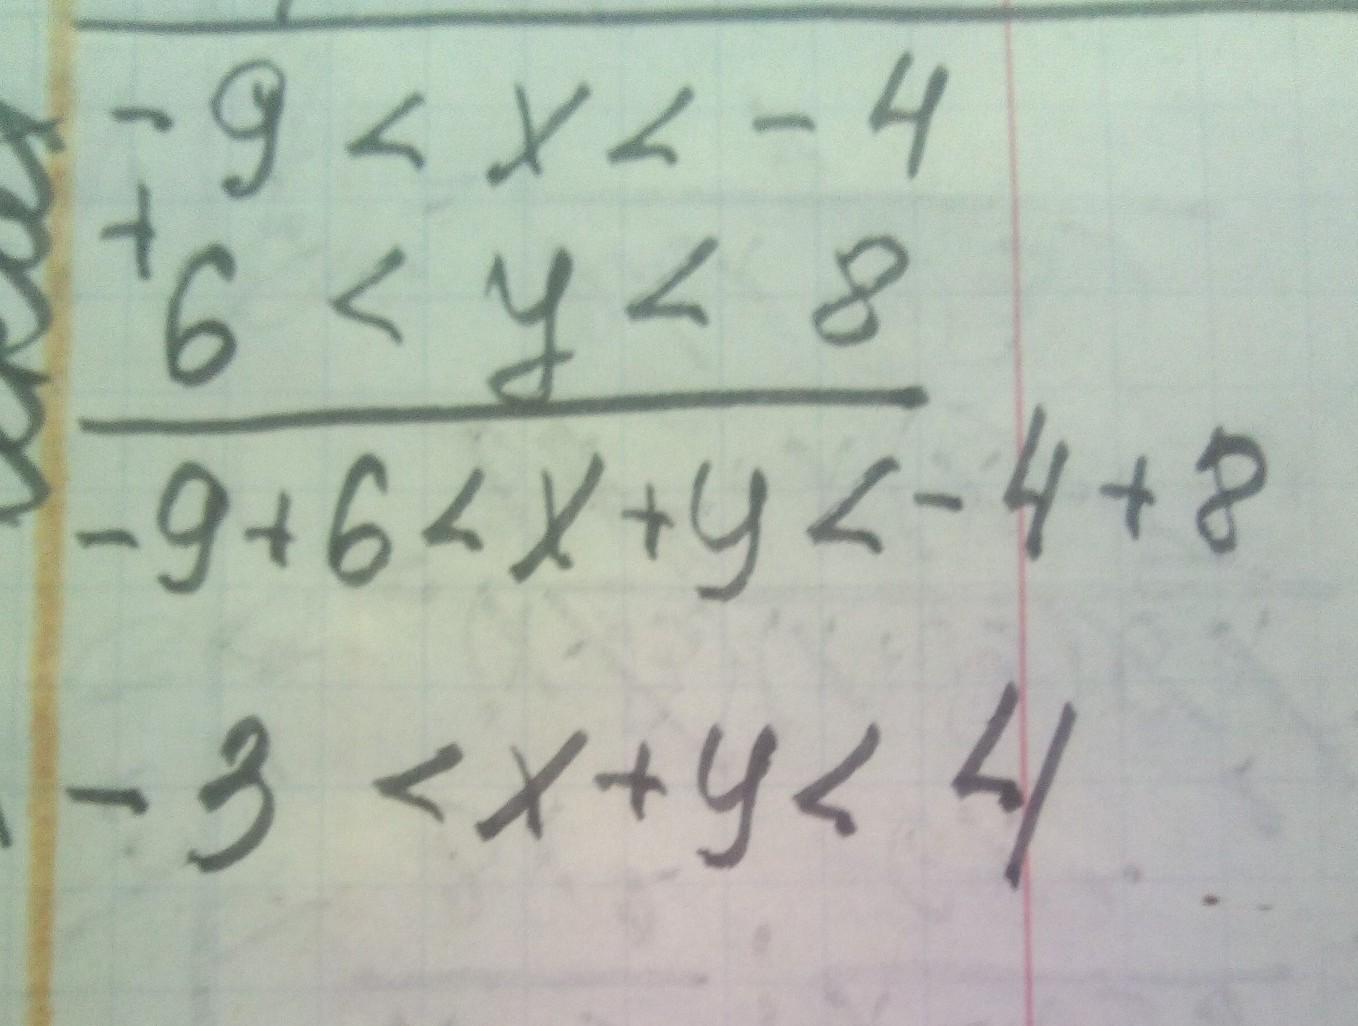 -9 < x < -4
+
6 < y < 8
-9+6<x+y<-4+8
-3 <x+y< 4